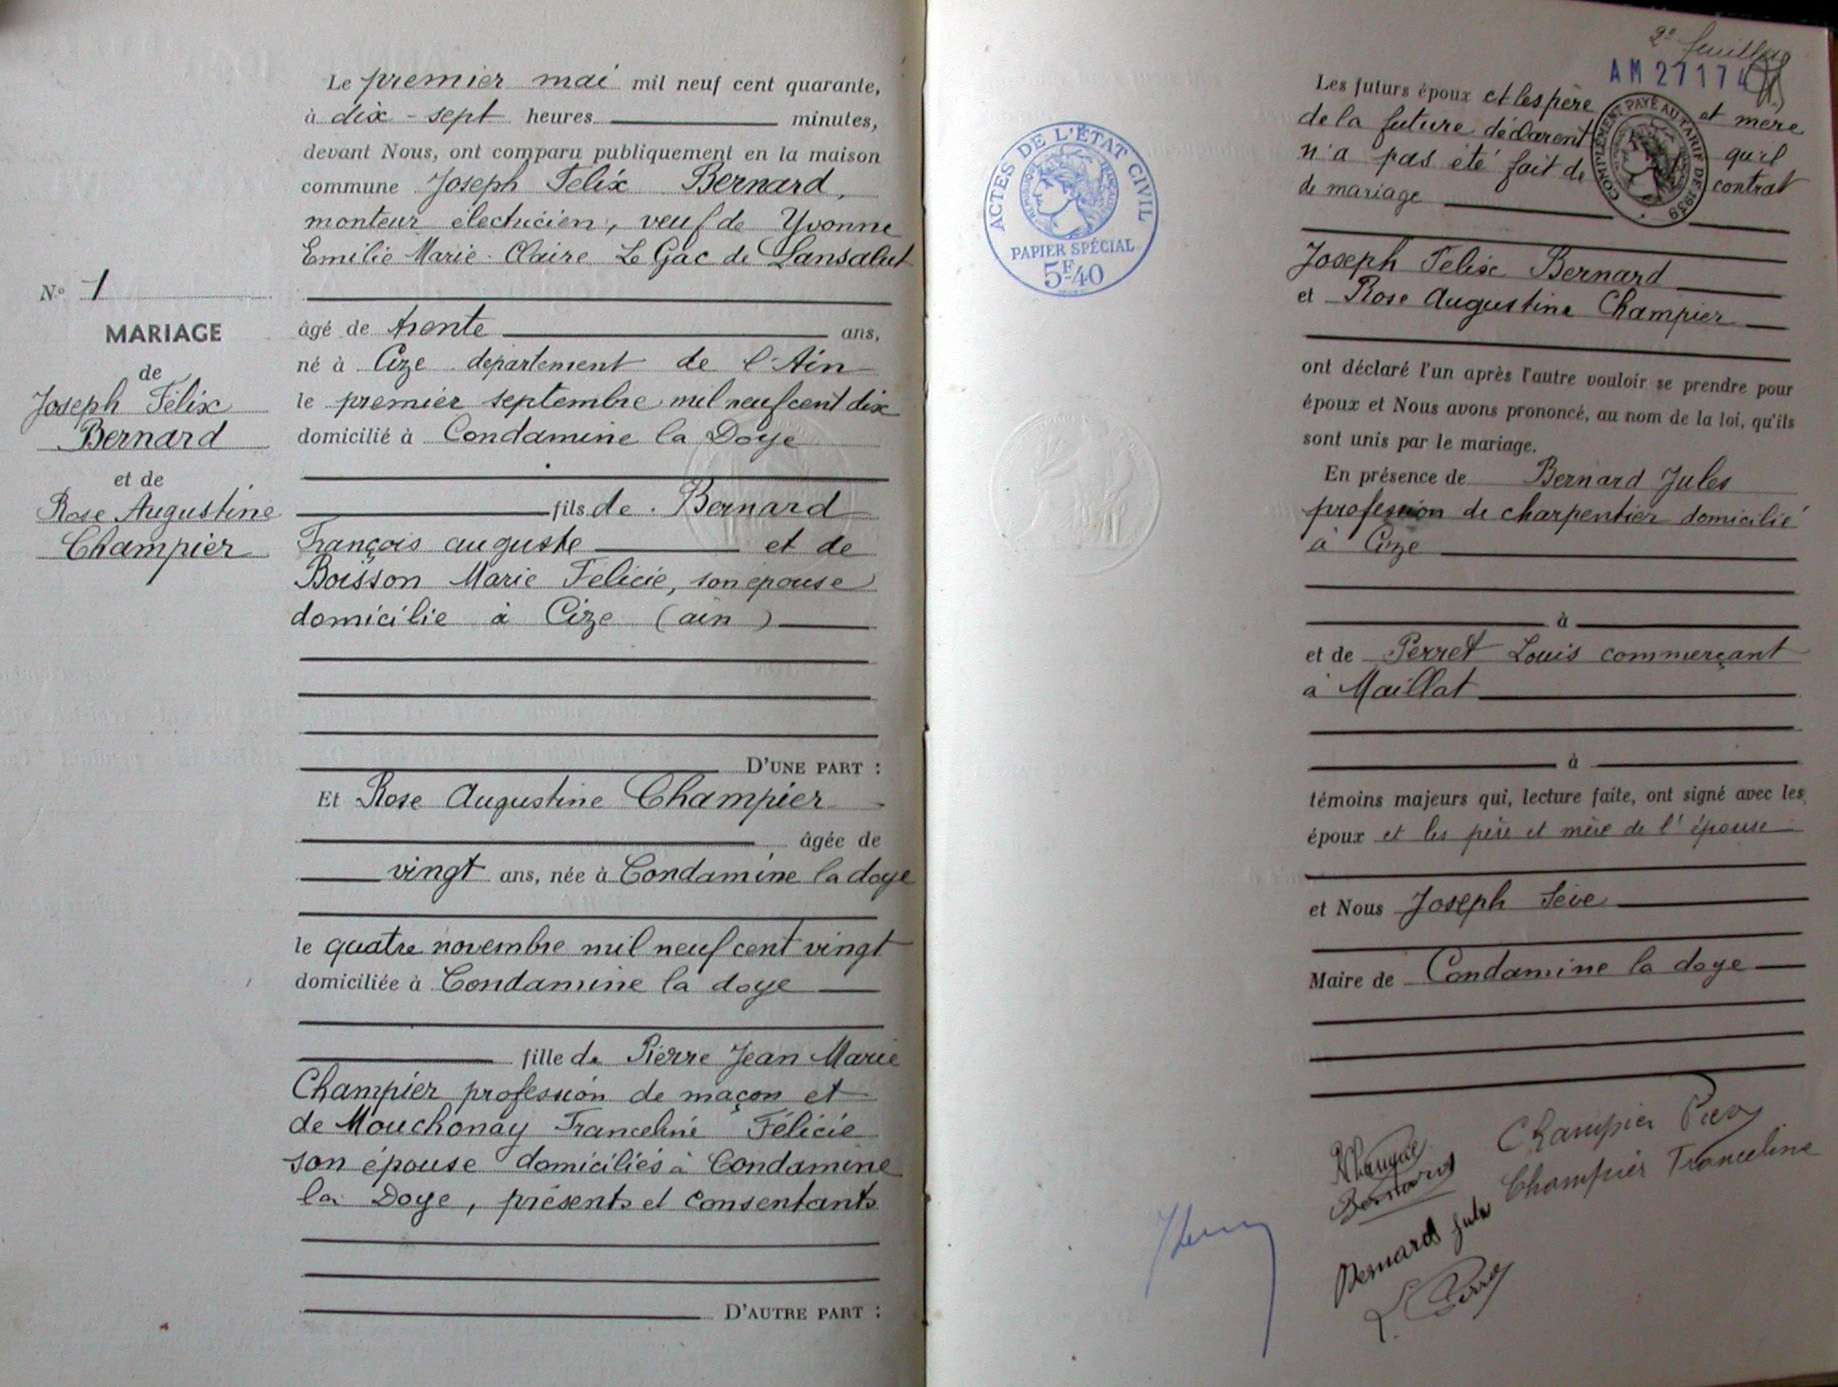 Le premier mai mil neuf cent quarante,
à dix-sept heures minutes,
devant Nous, ont comparu publiquement en la maison
commune Joseph Felix Bernard,
monteur électricien, veuf de Yvonne
Emilie Marie-Claire Le Gac de Lansalut
N° 1
MARIAGE
de
Joseph Félix
Bernard
et de
Rose Augustine
Champier
âgé de trente ans,
né à Cize département de l'Ain
le premier septembre mil neuf cent dix
domicilié à Condamine la Doye
fils de Bernard
François auguste et de
Boisson Marie Felicie, son épouse
domicilie à Cize (ain)
D'UNE PART :
Et Rose Augustine Champier
âgée de
vingt ans, née à Condamine la doye
le quatre novembre mil neuf cent vingt
domiciliée à Condamine la doye
fille de Pierre Jean Marie
Champier profession de maçon et
de Mouchonay Franceline Félicie
son épouse domiciliés à Condamine
la Doye, présents et consentants
D'AUTRE PART :
ACTES DE L'ÉTAT CIVIL
PAPIER SPÉCIAL
5F40
2e feuillet
AM 27174
COMPLÉMENT PAYÉ AU TARIF DE 1939
Les futurs époux et les père et mère
de la future déclarent qu'il
n'a pas été fait de contrat
de mariage
Joseph Felix Bernard
et Rose Augustine Champier
ont déclaré l'un après l'autre vouloir se prendre pour
époux et Nous avons prononcé, au nom de la loi, qu'ils
sont unis par le mariage.
En présence de Bernard Jules
profession de charpentier domicilié
à Cize
à
et de Perret Louis commerçant
à Maillat
à
témoins majeurs qui, lecture faite, ont signé avec les
époux et les père et mère de l'épouse
et Nous Joseph Sève
Maire de Condamine la doye
Champier
Bernard
Champier Franceline
Bernard Jules